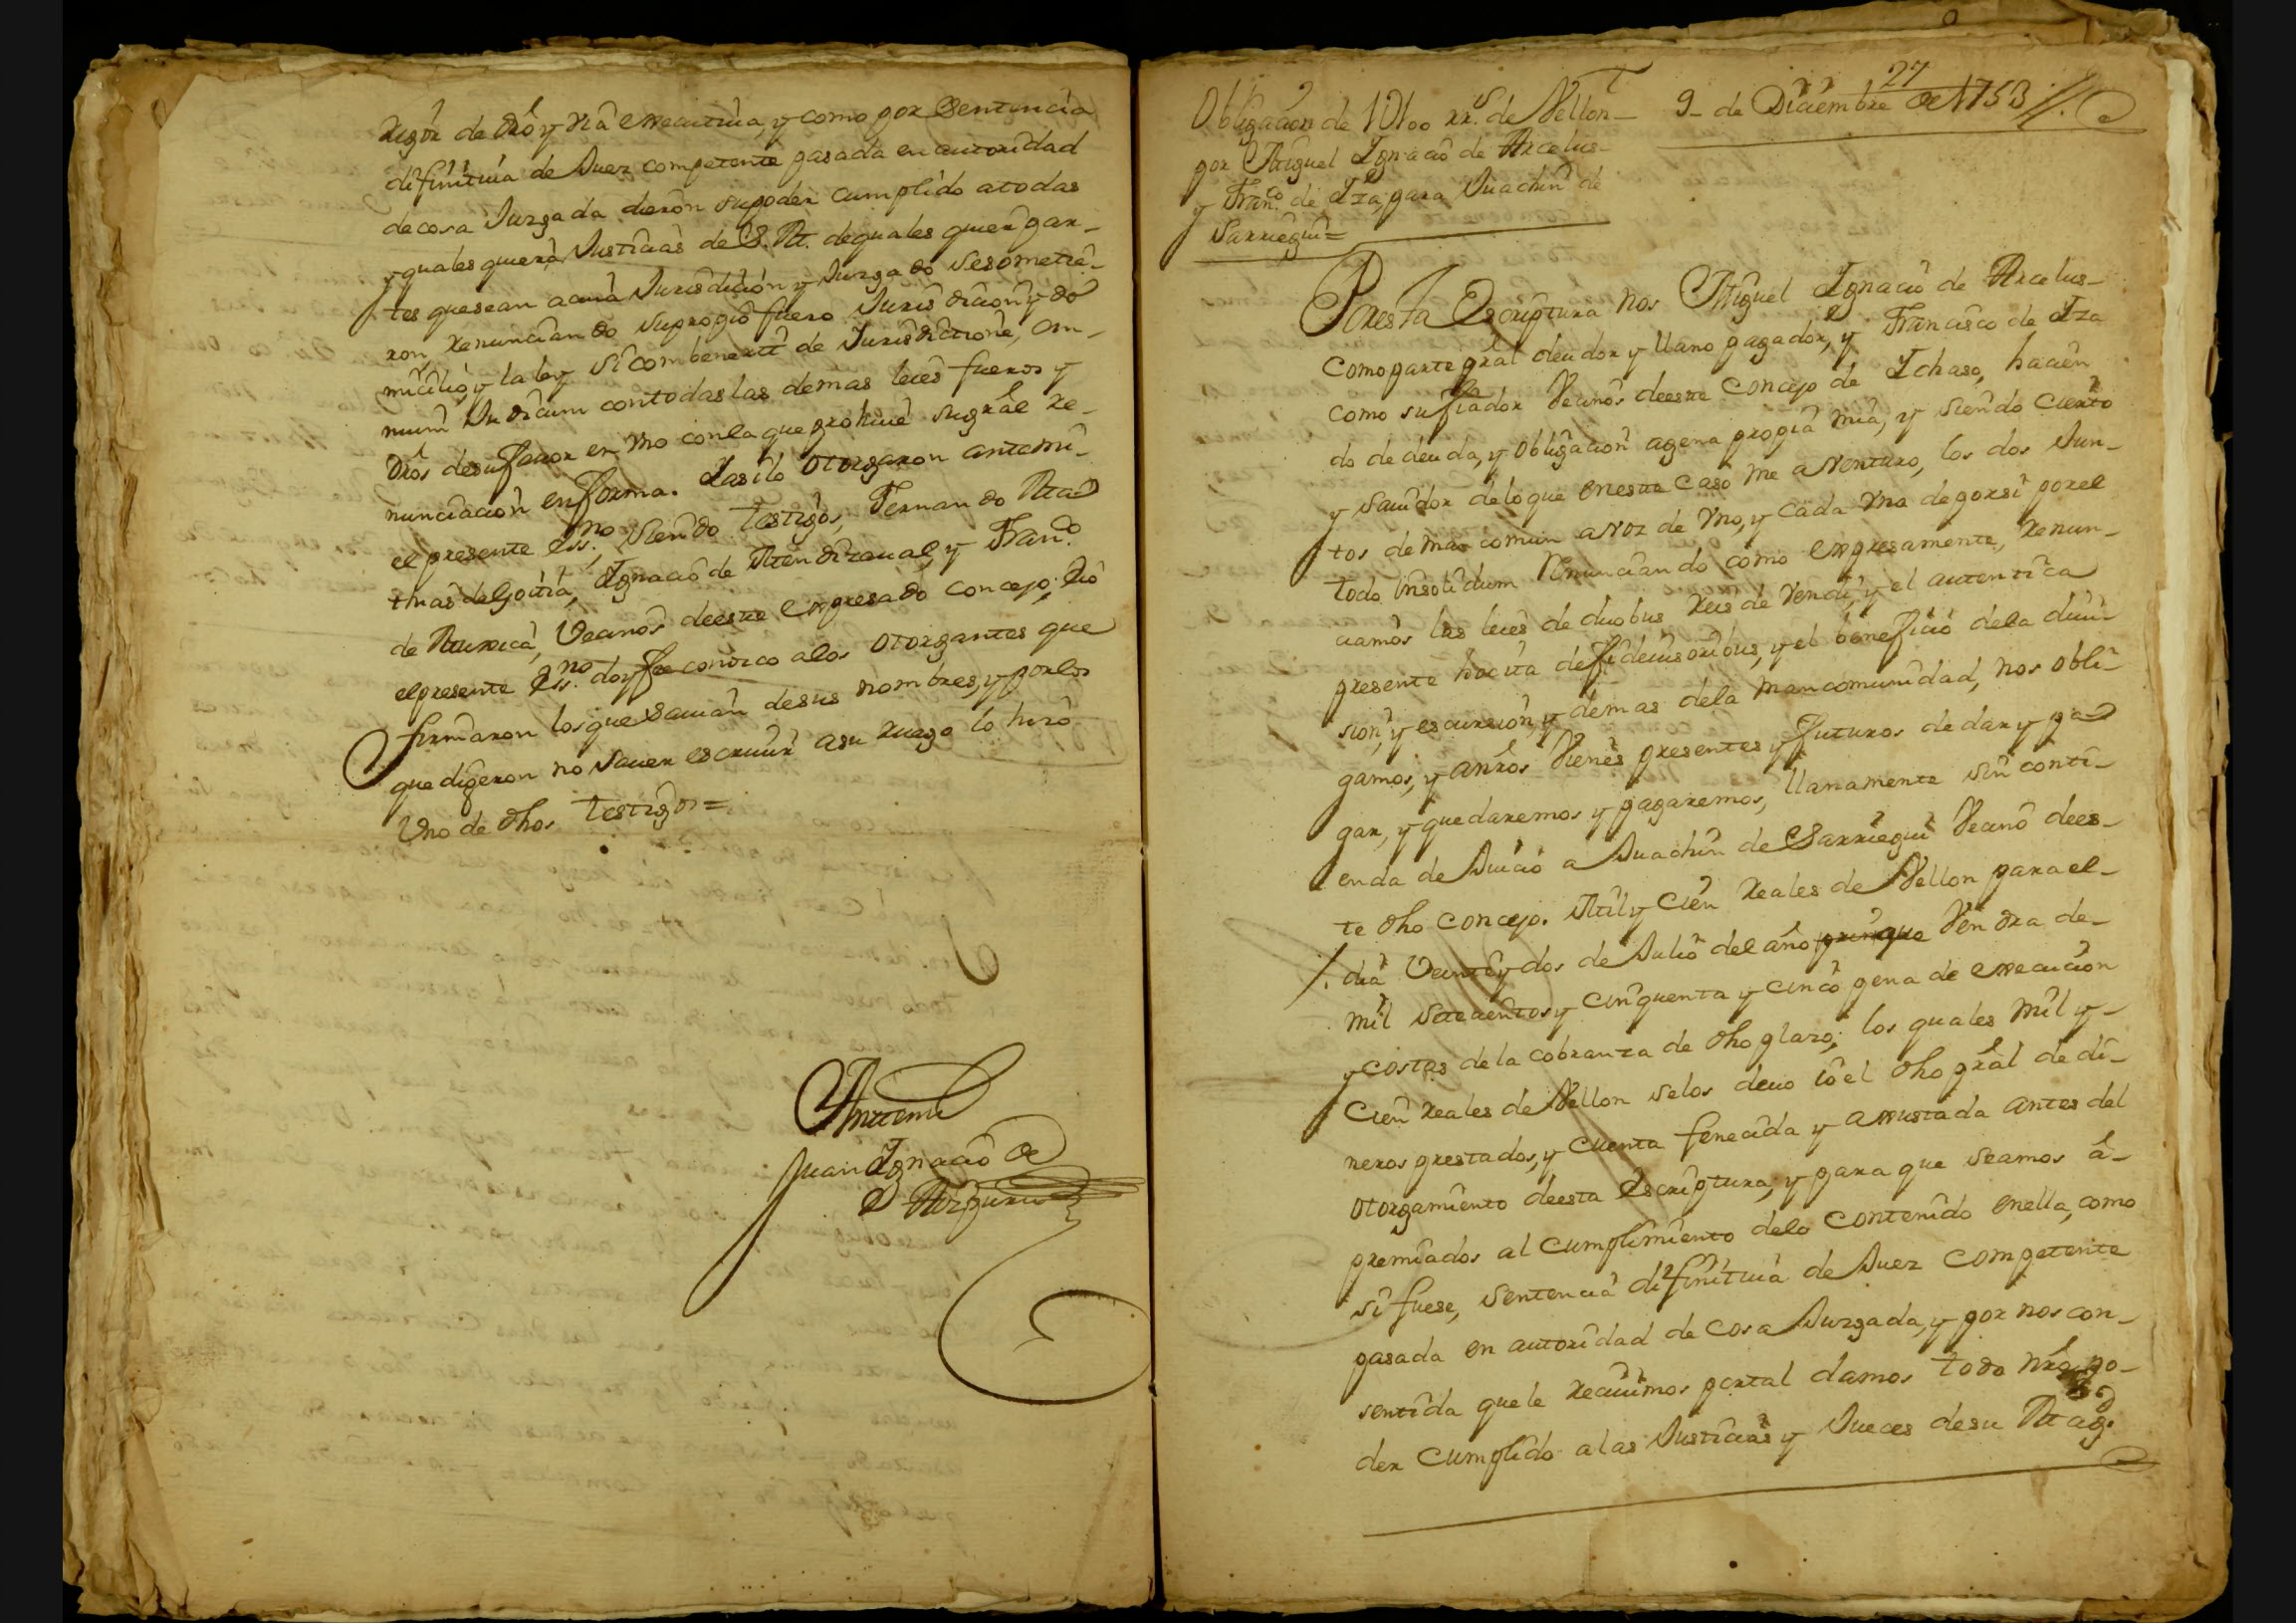 rigór de dró y via executiua, y como por Sentencia
difinitiua de Juez competente pasada en autoridad
de cosa Juzgada dieron su poder cumplido atodas
y qualesquiera Justicias de S. M. de quales quier par-
tes que sean acuia Jurisdición y Juzgado se sometie-
ron, renunciando su propio fuero Jurisdicion y do
micilio, y la ley si combenerit de Jurisdictione, om-
nium Judicum con todas las demas leies fueros y
dros desu fauor en vno con la que prohiue su grâl re-
nunciacion en forma. Iasi lo otorgaron ante mi
el presente ess.no, siendo testigos, Fernando Ma
thias de Goitia, Ignacio de Mendizaual, y Fran.co
de Muxica, Vecinos de este expresado concejo, Iió
el presente Ess.no doy fee conozco alos otorgantes que
firmaron los que sauian de sus nombres, y por los
que digeron no sauer escriuir a su ruego lo hizo
Vno de dhos testigos=
Ante mi
Juan Ignacio de
Aizpuru
27
Obligacion de 1U100 rr.s de Vellon- 9- de Diciembre de 1753
por Miguel Ignacio de Arcelus-
y Fran.co de Iza, para Juachin de
Sarriegui=
Por esta Escriptura nos Miguel Ignacio de Arcelus-
como parte prâl deudor y llano pagador, y Francisco de Iza
como su fiador Vecinos de este Concejo de Ichaso, hacien
do de deuda, y obligacion agena propia mia, y siendo cierto
y sauidor de lo que en este caso me aventuro, los dos Jun-
tos de man comun a voz de vno, y cada vno de por si por el
todo insolidum renunciando como expresamente, renun-
ciamos las leies de duobus reis de vendi, y el autentica
presente hocita de fideiusoribus, y el beneficio dela diui-
sion, y escursion, y demas dela mancomunidad, nos obli-
gamos, y anrôs Vienes presentes y futuros de dar y pa
gar, y que daremos y pagaremos, llanamente sin conti-
enda de Juicio a Juachin de Sarriegui Vecino de es-
te dho concejo. Mil y Cien Reales de Vellon para el-
dia Veinte y dos de Julio del año Vendra de-
mil setecientos y cinquenta y cinco pena de execucion
y costas de la cobranza de dho plazo, los quales mil y-
Cien reales de Vellon se los deuo io el dho prâl de di-
neros prestados, y cuenta fenecida y axustada antes del
otorgamiento de esta Escriptura, y para que seamos â-
premiados al cumplimiento delo contenido en ella, como
si fuese, sentencia difinitiua de Juez competente
pasada en autoridad de cosa Juzgada, y por nos con-
sentida que le reciuimos por tal damos todo nrô po-
der cumplido a las Justicias y Jueces de su Mag.d